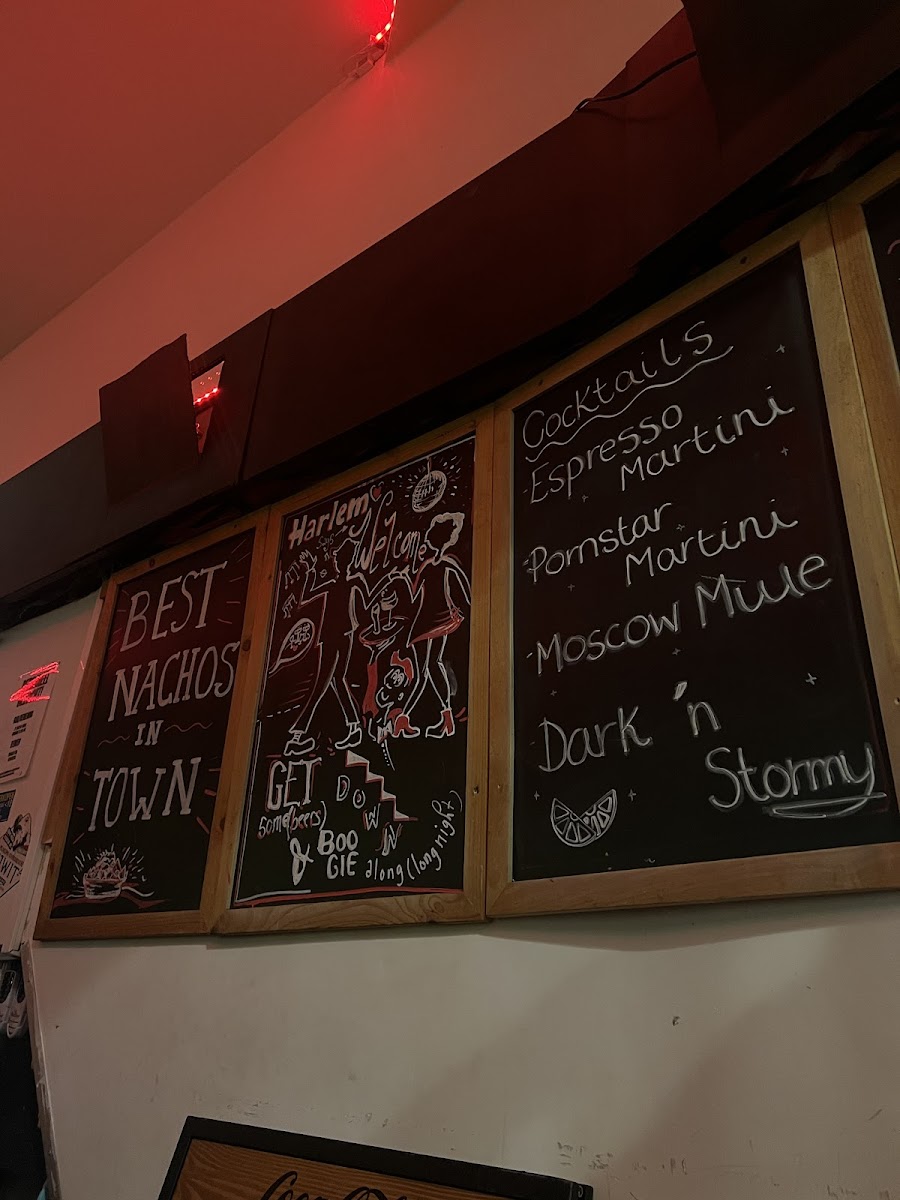 BEST
NACHOS
IN
TOWN
Harlem
says
Welcome
GET
some(beers)
DOWN
&
BOO
GIE
along (long night)
Cocktails
Espresso
Martini
Pornstar
Martini
Moscow Mule
Dark 'n
Stormy